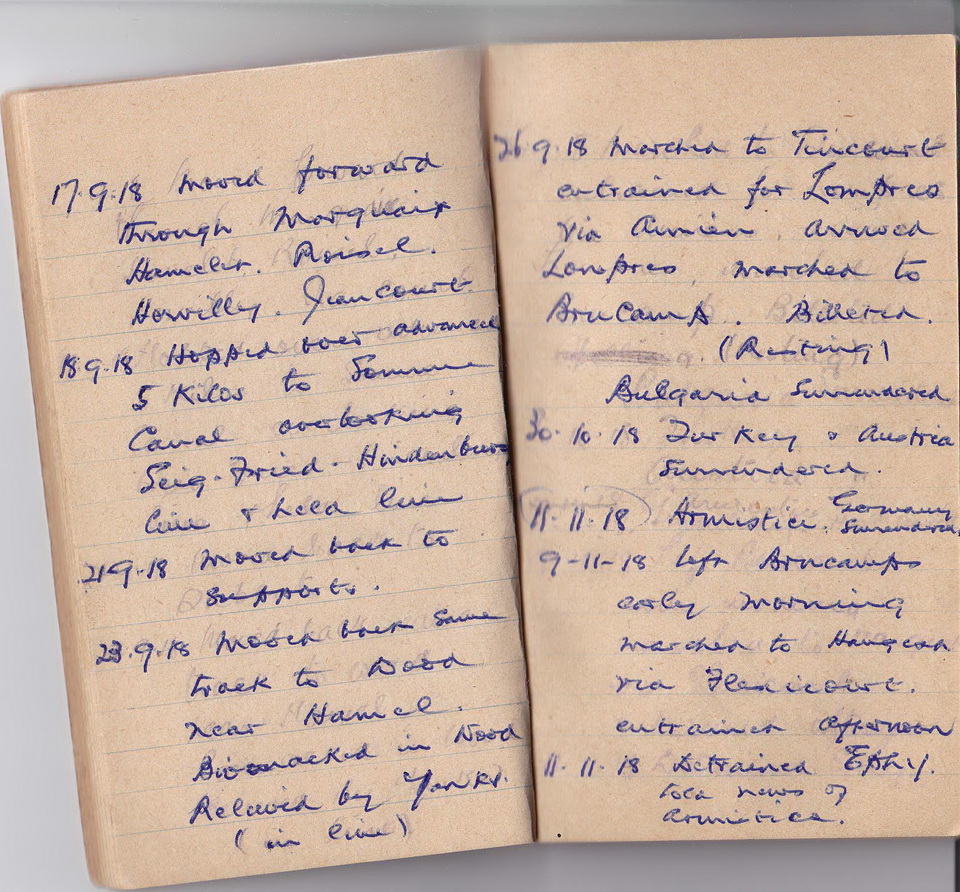 17.9.18 Moved forward
through Marquaix
Hamelet. Roisel.
Hervilly. Jeancourt.
18.9.18 Hopped over advanced
5 Kilos to Somme
Canal overlooking
Seig-Fried-Hindenburg
line &
21-9-18 Moved back to
supports.
23.9.18 Moved back same
track to Wood
near Hamel.
Bivouacked in Wood
Relieved by Yanks.
(in line)
26.9.18 Marched to Tincourt
entrained for Lompres
via Amien, arrived
Lompres, marched to
BruCamp. Billeted.
(Resting)
Bulgaria Surrendered
30.10.18 Turkey & Austria
Surrendered.
11.11.18 Armistice. Germany
Surrendered.
9-11-18 left Brucamps
early morning
marched to
via Flexicourt.
entrained afternoon
11.11.18 Detrained Ephy.
told news of
armistice.